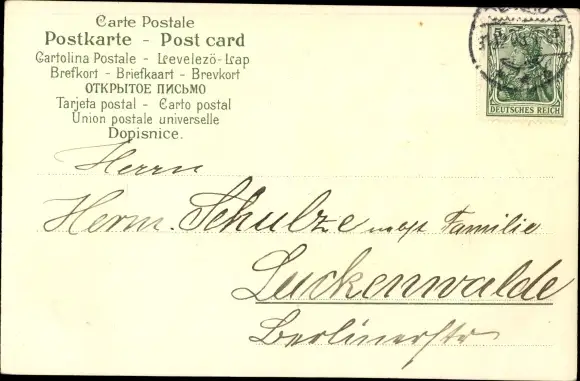 Carte Postale
Postkarte - Post card
Cartolina Postale - Levelező-Lap
Brefkort - Briefkaart - Brevkort
ОТКРЫТОЕ ПИСЬМО
Tarjeta postal - Carto postal
Union postale universelle
Dopisnice.
5 5
DEUTSCHES REICH
Herrn
Herm. Schulze Familie
Luckenwalde
Berlinerstr